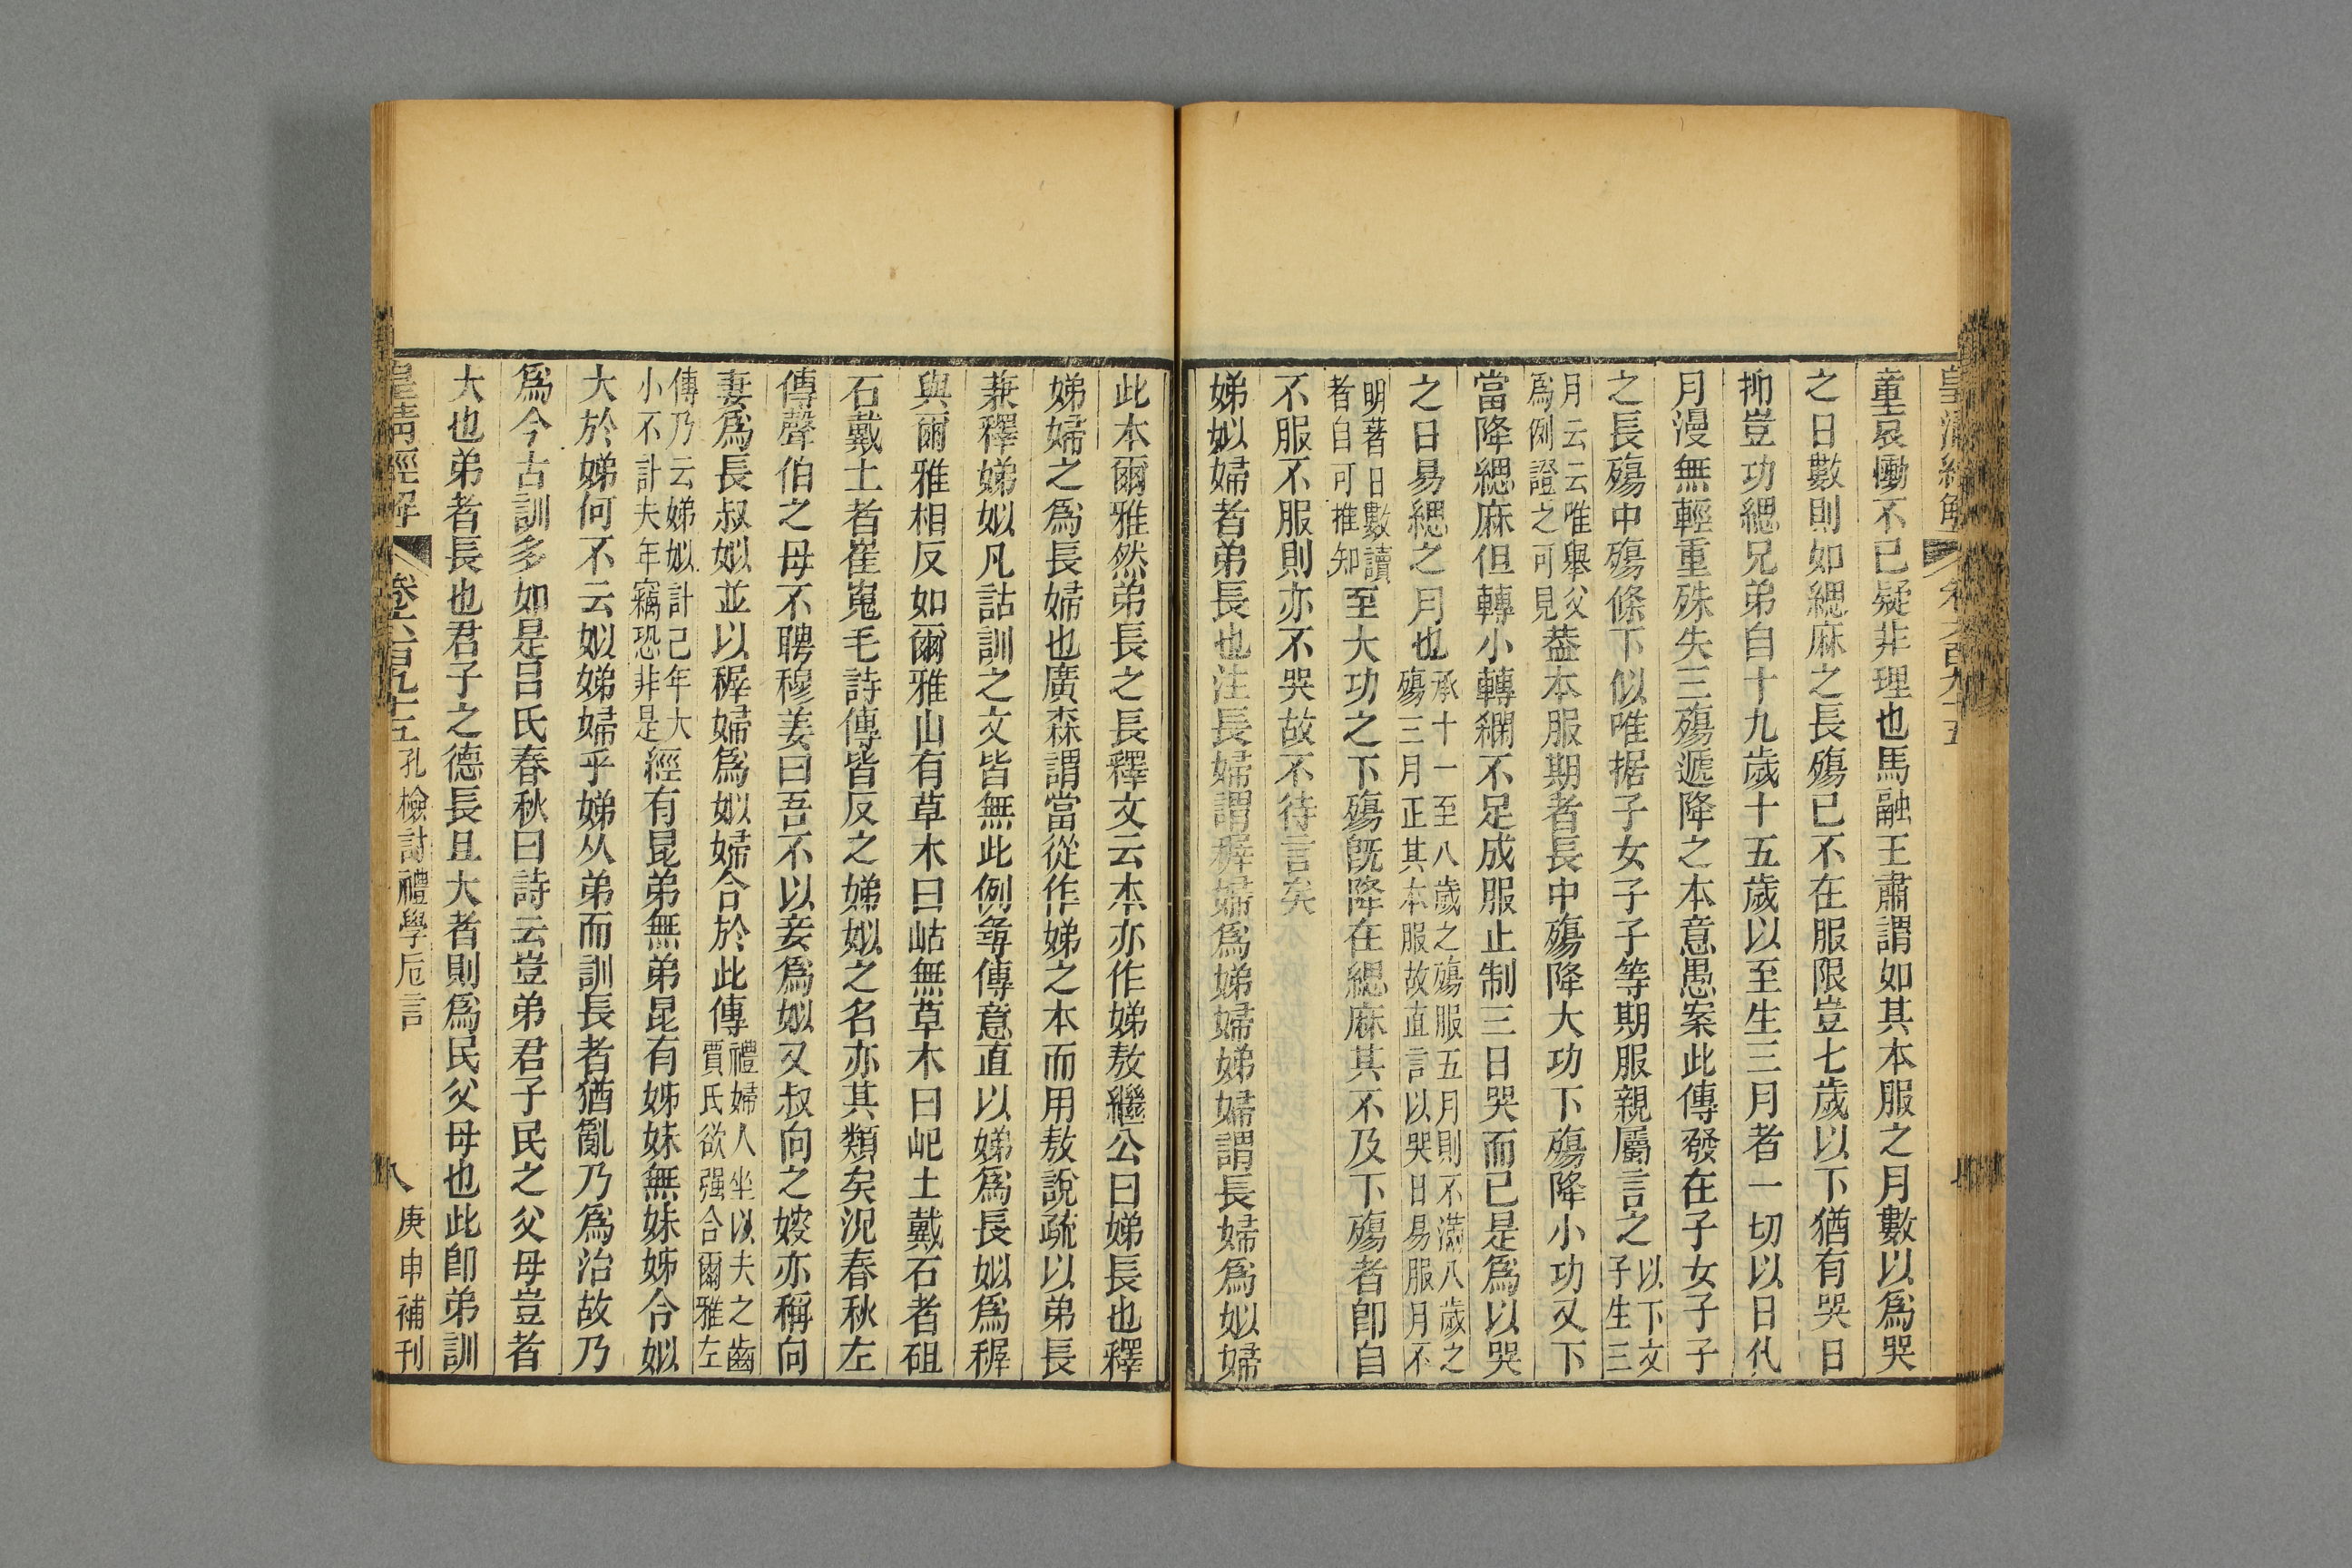 童哀慟不已疑非理也馬融王肅謂如其本服之月數以爲哭
之日數則如緦麻之長殤已不在服限豈七歲以下猶有哭日
抑豈功緦兄弟自十九歲十五歲以至生三月者一切以日代
月漫無輕重殊失三殤遞降之本意愚案此傳發在子女子子
之長殤中殤條下似唯据子女子子等期服親屬言之以下文子生三
月云云唯舉父爲例證之可見葢本服期者長中殤降大功下殤降小功又下
當降緦麻但轉小轉糊不足成服止制三日哭而已是爲以哭
之日易緦之月也承十一至八歲之殤服五月則不滿八歲之殤三月正其本服故直言以哭日易服月不
明著日數讀者自可推知至大功之下殤旣降在緦麻其不及下殤者卽自
不服不服則亦不哭故不待言矣
娣姒婦者弟長也注長婦謂穉婦爲娣婦娣婦謂長婦爲姒婦
此本爾雅然弟長之長釋文云本亦作娣敖繼公曰娣長也釋
娣婦之爲長婦也廣森謂當從作娣之本而用敖說疏以弟長
兼釋娣姒凡詁訓之文皆無此例尋傳意直以娣爲長姒爲穉
與爾雅相反如爾雅山有草木曰岵無草木曰屺土戴石者砠
石戴土者崔嵬毛詩傳皆反之娣姒之名亦其類矣況春秋左
傳聲伯之母不聘穆姜曰吾不以妾爲姒又叔向之嫂亦稱向
妻爲長叔姒並以穉婦爲姒婦合於此傳禮婦人坐以夫之齒賈氏欲强合爾雅左
傳乃云娣姒計己年大小不計夫年竊恐非是經有昆弟無弟昆有姊妹無妹姊令姒
大於娣何不云姒娣婦乎娣从弟而訓長者猶亂乃爲治故乃
爲今古訓多如是呂氏春秋曰詩云豈弟君子民之父母豈者
大也弟者長也君子之德長且大者則爲民父母也此卽弟訓
皇清經解 卷六百九十五 孔檢討禮學卮言 八 庚申補刊